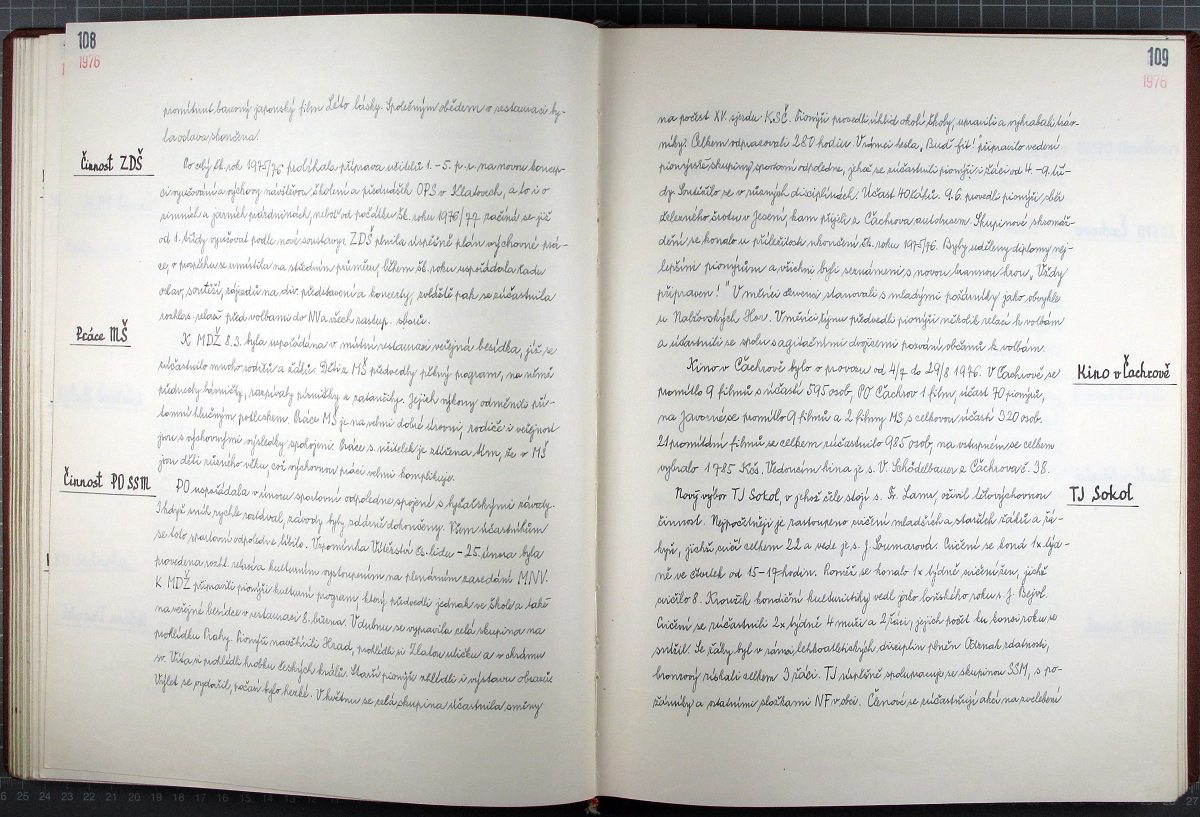 108
1976
promítnut barevný japonský film Léto lásky. Společným obědem v restauraci by-
la oslava skončena.
Činnost ZDŠ
Po celý šk. rok 1975/76 probíhala příprava učitelů 1. - 5. p. r. na novou koncep-
ci vyučování a výchovy návštěvou školení a přednášek OPS v Klatovech, a to i o
zimních a jarních prázdninách, neboť od počátku šk. roku 1976/77 začíná se již
od 1. třídy vyučovat podle nové soustavy. ZDŠ plnila úspěšně plán výchovné prá-
ce, v prospěchu se umístila na středním průměru, během šk. roku uspořádala řadu
oslav, soutěží, zájezdů na div. představení a koncerty, zvláště pak se zúčastnila
rozhlas. relací před volbami do NV a všech zastup. sborů.
Práce MŠ
K MDŽ 8.3. byla uspořádána v místní restauraci veřejná besídka, jíž se
zúčastnilo mnoho rodičů a žáků. Děti z MŠ předvedly pěkný program, na němž
přednesly básničky, zazpívaly písničky a zatančily. Jejich výkony odměnili pří-
tomní hlučným potleskem. Práce MŠ je na velmi dobré úrovni, rodiče i veřejnost
jsou s výchovnými výsledky spokojeni. Práce s. učitelek je ztížena tím, že v MŠ
jsou děti různého věku, což výchovnou práci velmi komplikuje.
Činnost PO SSM
PO uspořádala v únoru sportovní odpoledne spojené s lyžařskými závody.
I když sníh rychle roztával, závody byly zdárně dokončeny. Všem účastníkům
se toto sportovní odpoledne líbilo. Vzpomínka Vítězství čs. lidu - 25. února byla
provedena rozhl. relací a kulturním vystoupením na plenárním zasedání MNV.
K MDŽ připravili pionýři kulturní program, který předvedli jednak ve škole a také
na veřejné besídce v restauraci 8. března. V dubnu se vypravila celá skupina na
prohlídku Prahy. Pionýři navštívili Hrad, prohlédli si Zlatou uličku a v chrámu
sv. Víta si prohlédli hrobku českých králů. Starší pionýři zhlédli i výstavu obrazů.
Výlet se vydařil, počasí bylo hezké. V květnu se celá skupina účastnila směny
109
1976
na počest XV. sjezdu KSČ. Pionýři provedli úklid okolí školy, upravili a vyhrabali tráv-
níky. Celkem odpracovali 280 hodin. V rámci hesla „Buď fit" připravilo vedení
pionýrské skupiny sportovní odpoledne, jehož se zúčastnili pionýři i žáci od 4. - 9. tří-
dy. Soutěžilo se v různých disciplínách. Účast 40 žáků. 9.6. provedli pionýři sběr
železného šrotu v Jesení, kam přijeli z Čachrova autobusem. Skupinové shromáž-
dění se konalo u příležitosti ukončení šk. roku 1975/76. Byly uděleny diplomy nej-
lepším pionýrům a všichni byli seznámeni s novou brannou hrou „Vždy
připraven!" V měsíci červenci stanovali s mladými požárníky jako obvykle
u Nalžovských Hor. V měsíci říjnu předvedli pionýři několik relací k volbám
a účastnili se spolu s agitačními dvojicemi pozvání občanů k volbám.
Kino v Čachrově
Kino v Čachrově bylo v provozu od 4/7 do 29/8 1976. V Čachrově se
promítlo 9 filmů s účastí 595 osob, PO Čachrov 1 film, účast 70 pionýrů,
na Javorné se promítlo 9 filmů a 2 filmy MŠ s celkovou účastí 320 osob.
21 promítání filmů se celkem zúčastnilo 985 osob, na vstupném se celkem
vybralo 1785 Kčs. Vedoucím kina je s. V. Schödelbauer z Čachrova č. 38.
TJ Sokol
Nový výbor TJ Sokol, v jehož čele stojí s. Fr. Lamr, oživil tělovýchovnou
činnost. Nejpočetněji je zastoupeno cvičení mladších a starších žáků a žá-
kyň, jichž cvičí celkem 22 a vede je s. J. Soumarová. Cvičení se koná 1x týd-
ně ve čtvrtek od 15-17 hodin. Rovněž se konalo 1x týdně cvičení žen, jichž
cvičilo 8. Kroužek kondiční kulturistiky vedl jako loňského roku s. J. Bejvl.
Cvičení se zúčastnili 2x týdně 4 muži a 2 žáci, jejich počet ku konci roku se
snížil. Se žáky byl v rámci lehkoatletických disciplín plněn Odznak zdatnosti,
bronzový získali celkem 3 žáci. TJ úspěšně spolupracuje se skupinou SSM, s po-
žárníky a ostatními složkami NF v obci. Členové se zúčastňují akcí na zvelebení